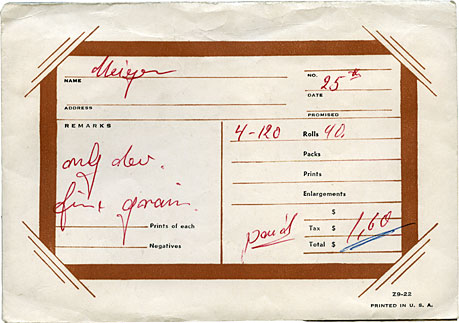 NAME
NO. 25
ADDRESS
DATE
PROMISED
REMARKS
4-120 Rolls 40.
Packs
only dev.
Prints
fine grain.
Enlargements
Prints of each
$
paid Tax $ 1,60
Negatives
Total $
Z9-22
PRINTED IN U. S. A.